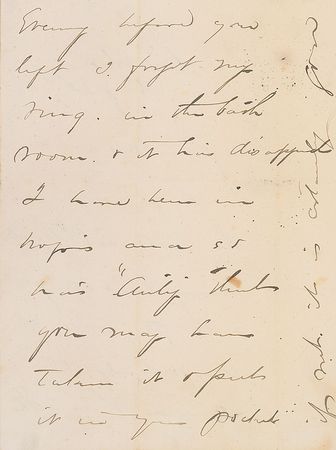 Evening before you
left I forgot my
ring. in the bath
room. & it has disappd
I have been in
hopes and so
has "Aunty" thinks
you may have
taken it & put
it in your pocket
if not. it is